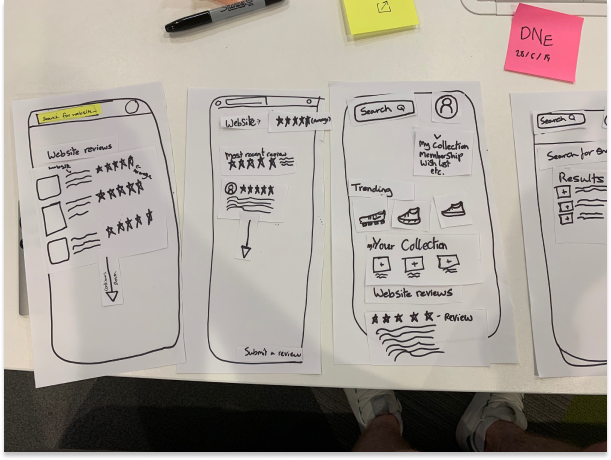 Sharpie
DNE
28/6/19
Search for website...
Website reviews
website
Website?
(average)
Most recent review
Submit a review
Search
My Collection
Membership
Wish list
etc.
Trending
Your Collection
Website reviews
- Review
Search
Search for
Results